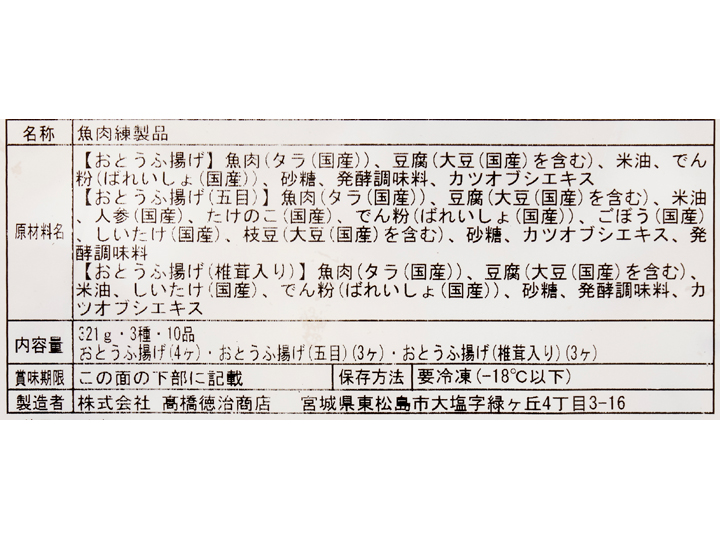 名称 魚肉練製品
原材料名
【おとうふ揚げ】魚肉(タラ(国産))、豆腐(大豆(国産)を含む)、米油、でん
粉(ばれいしょ(国産))、砂糖、発酵調味料、カツオブシエキス
【おとうふ揚げ(五目)】魚肉(タラ(国産))、豆腐(大豆(国産)を含む)、米油
、人参(国産)、たけのこ(国産)、でん粉(ばれいしょ(国産))、ごぼう(国産)
、しいたけ(国産)、枝豆(大豆(国産)を含む)、砂糖、カツオブシエキス、発
酵調味料
【おとうふ揚げ(椎茸入り)】魚肉(タラ(国産))、豆腐(大豆(国産)を含む)、
米油、しいたけ(国産)、でん粉(ばれいしょ(国産))、砂糖、発酵調味料、カ
ツオブシエキス
内容量
321g・3種・10品
おとうふ揚げ(4ヶ)・おとうふ揚げ(五目)(3ヶ)・おとうふ揚げ(椎茸入り)(3ヶ)
賞味期限 この面の下部に記載 保存方法 要冷凍(-18℃以下)
製造者 株式会社 高橋徳治商店 宮城県東松島市大塩字緑ヶ丘4丁目3-16